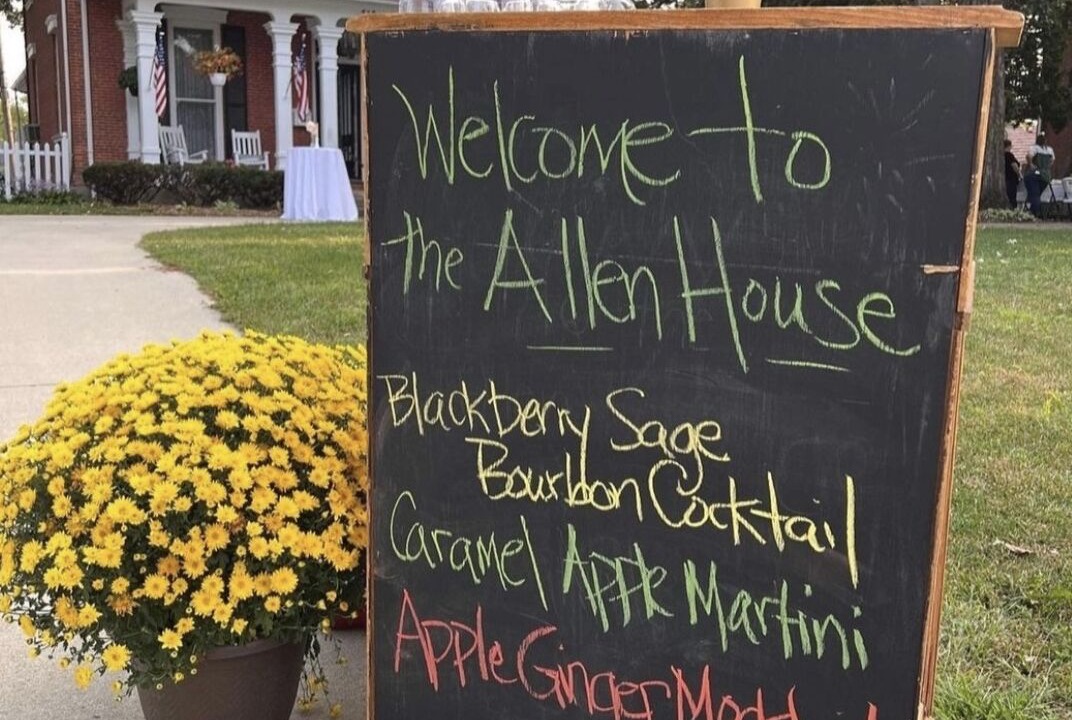 Welcome to
the Allen House
Blackberry Sage
Bourbon Cocktail
Caramel Apple Martini
Apple Ginger